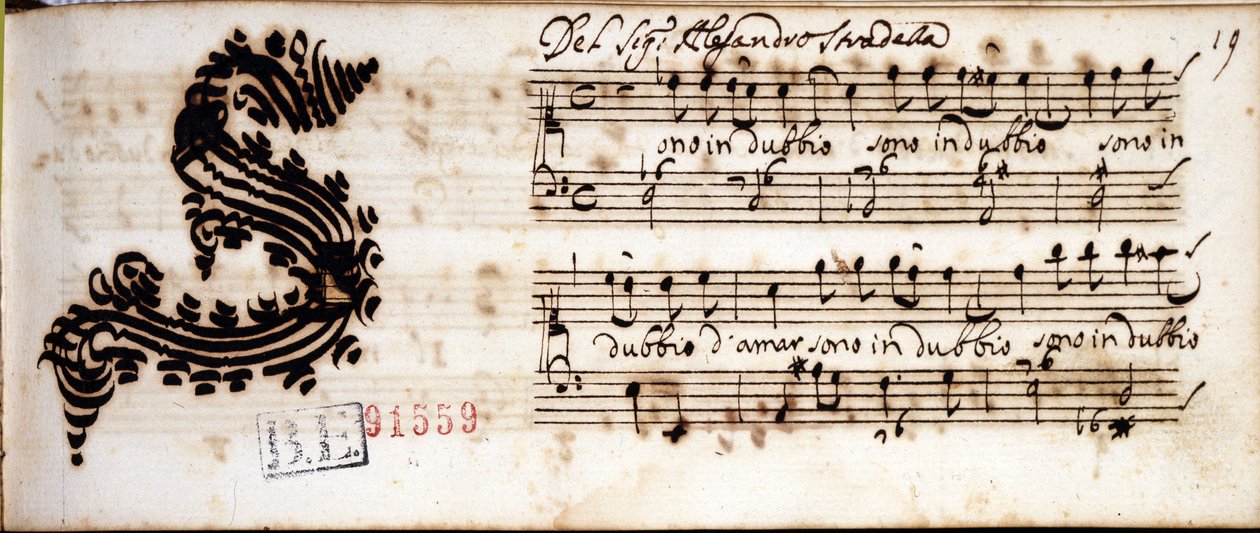 Del Sig.r Alesandro Stradella
19
S
ono in dubbio sono in dubbio sono in
dubbio d'amar sono in dubbio sono in dubbio
B.E.
91559